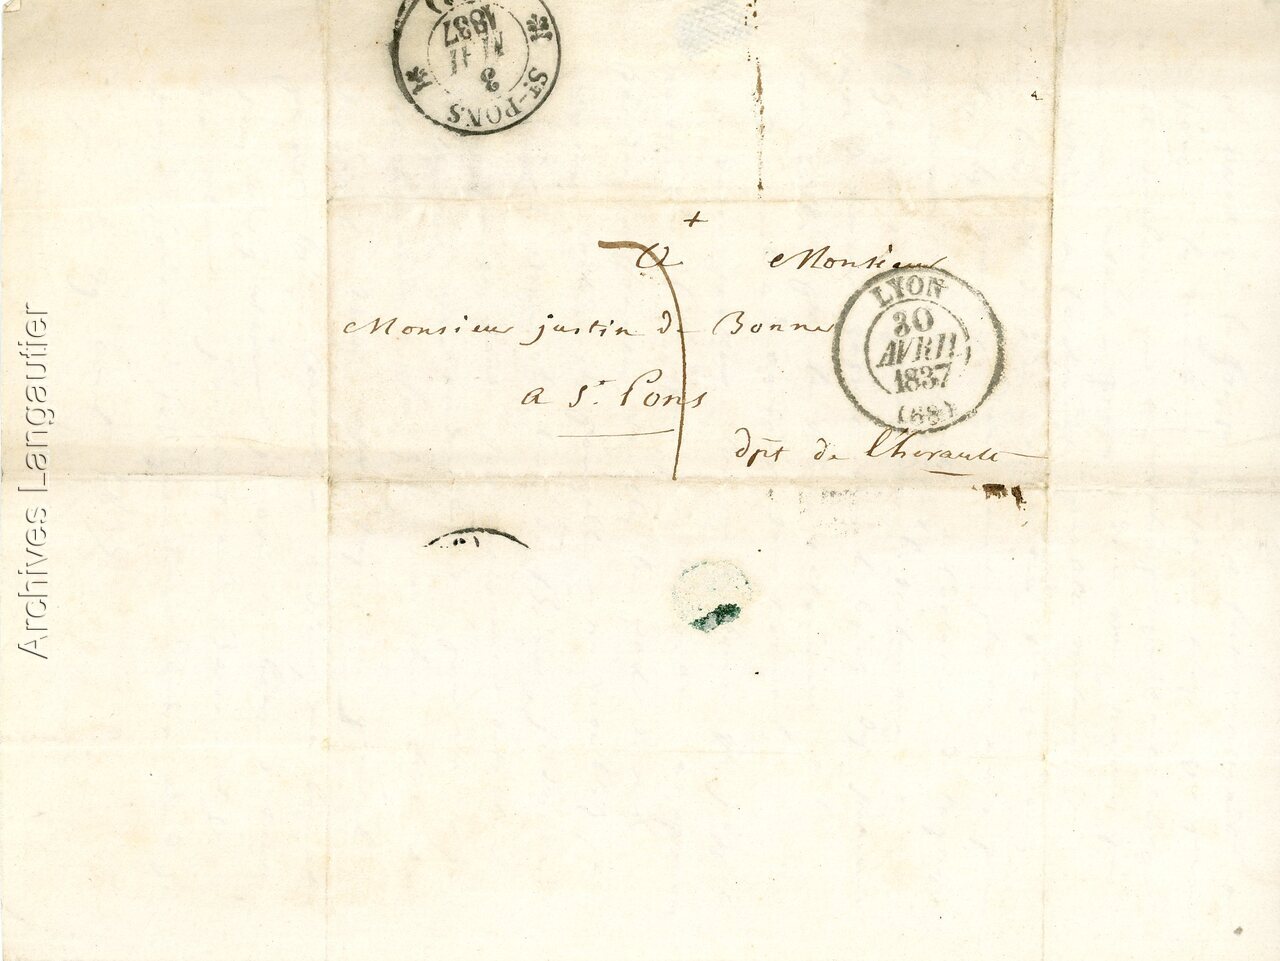 1837
MAI
3
ST-PONS
+
A Monsieur
Monsieur justin de Bonne
a St. Pons
dpt de l'herault
LYON
30
AVRIL
1837
(68)
Archives Langautier